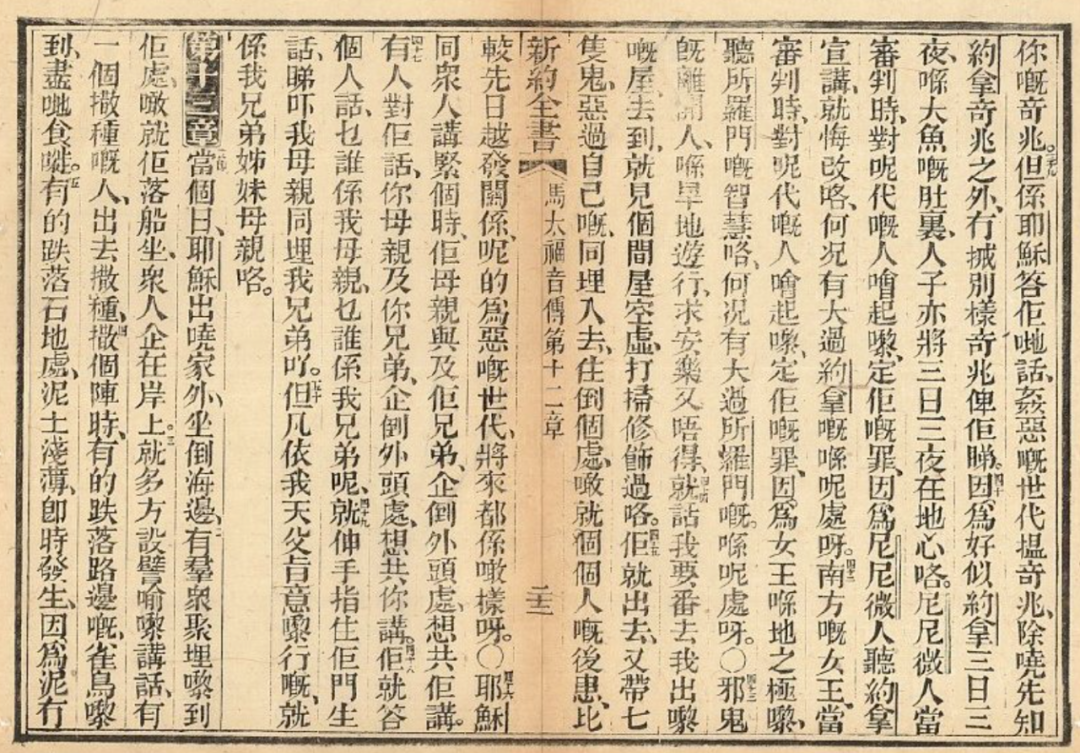 你嘅奇兆。三九但係耶穌答佢哋話、姦惡嘅世代搵奇兆、除嘵先知
約拿奇兆之外、冇搣別樣奇兆俾佢睇。四十因為好似約拿三日三
夜、喺大魚嘅肚裏、人子亦將三日三夜在地心咯。尼尼微人當
審判時、對呢代嘅人噲起嚟、定佢嘅罪、因為尼尼微人聽約拿
宣講、就悔改咯、何況有大過約拿嘅喺呢處呀。四二南方嘅女王、當
審判時、對呢代嘅人噲起嚟、定佢嘅罪、因為女王喺地之極嚟、
聽所羅門嘅智慧咯、何況有大過所羅門嘅、喺呢處呀。〇四三邪鬼
既離開人、喺旱地遊行、求安樂又唔得、四四就話我要番去我出嚟
嘅屋、去到、就見個間屋空虛、打掃修飾過咯。四五佢就出去、又帶七
隻鬼、惡過自己嘅、同埋入去、住倒個處、噉就個個人嘅後患、比
新約全書 馬太福音傳第十二章 二十三
較先日越發關係、呢的為惡嘅世代、將來都係噉樣呀。〇四六耶穌
同衆人講緊個時、佢母親與及佢兄弟、企倒外頭處、想共佢講。
四七有人對佢話、你母親及你兄弟、企倒外頭處、想共你講。四八佢就答
個人話、乜誰係我母親、乜誰係我兄弟呢、四九就伸手指住佢門生
話、睇吓我母親同埋我兄弟吖。五十但凡依我天父旨意嚟行嘅、就
係我兄弟姊妹母親咯。
第十三章 一當個日、耶穌出嘵家外、坐倒海邊、二有羣衆聚埋嚟到
佢處、噉就佢落船坐、衆人企在岸上。三就多方設譬喻嚟講話、有
一個撒種嘅人、出去撒種、四撒個陣時、有的跌落路邊嘅、雀鳥嚟
到、盡哋食嘥。五有的跌落石地處、泥土淺薄、卽時發生、因為泥冇